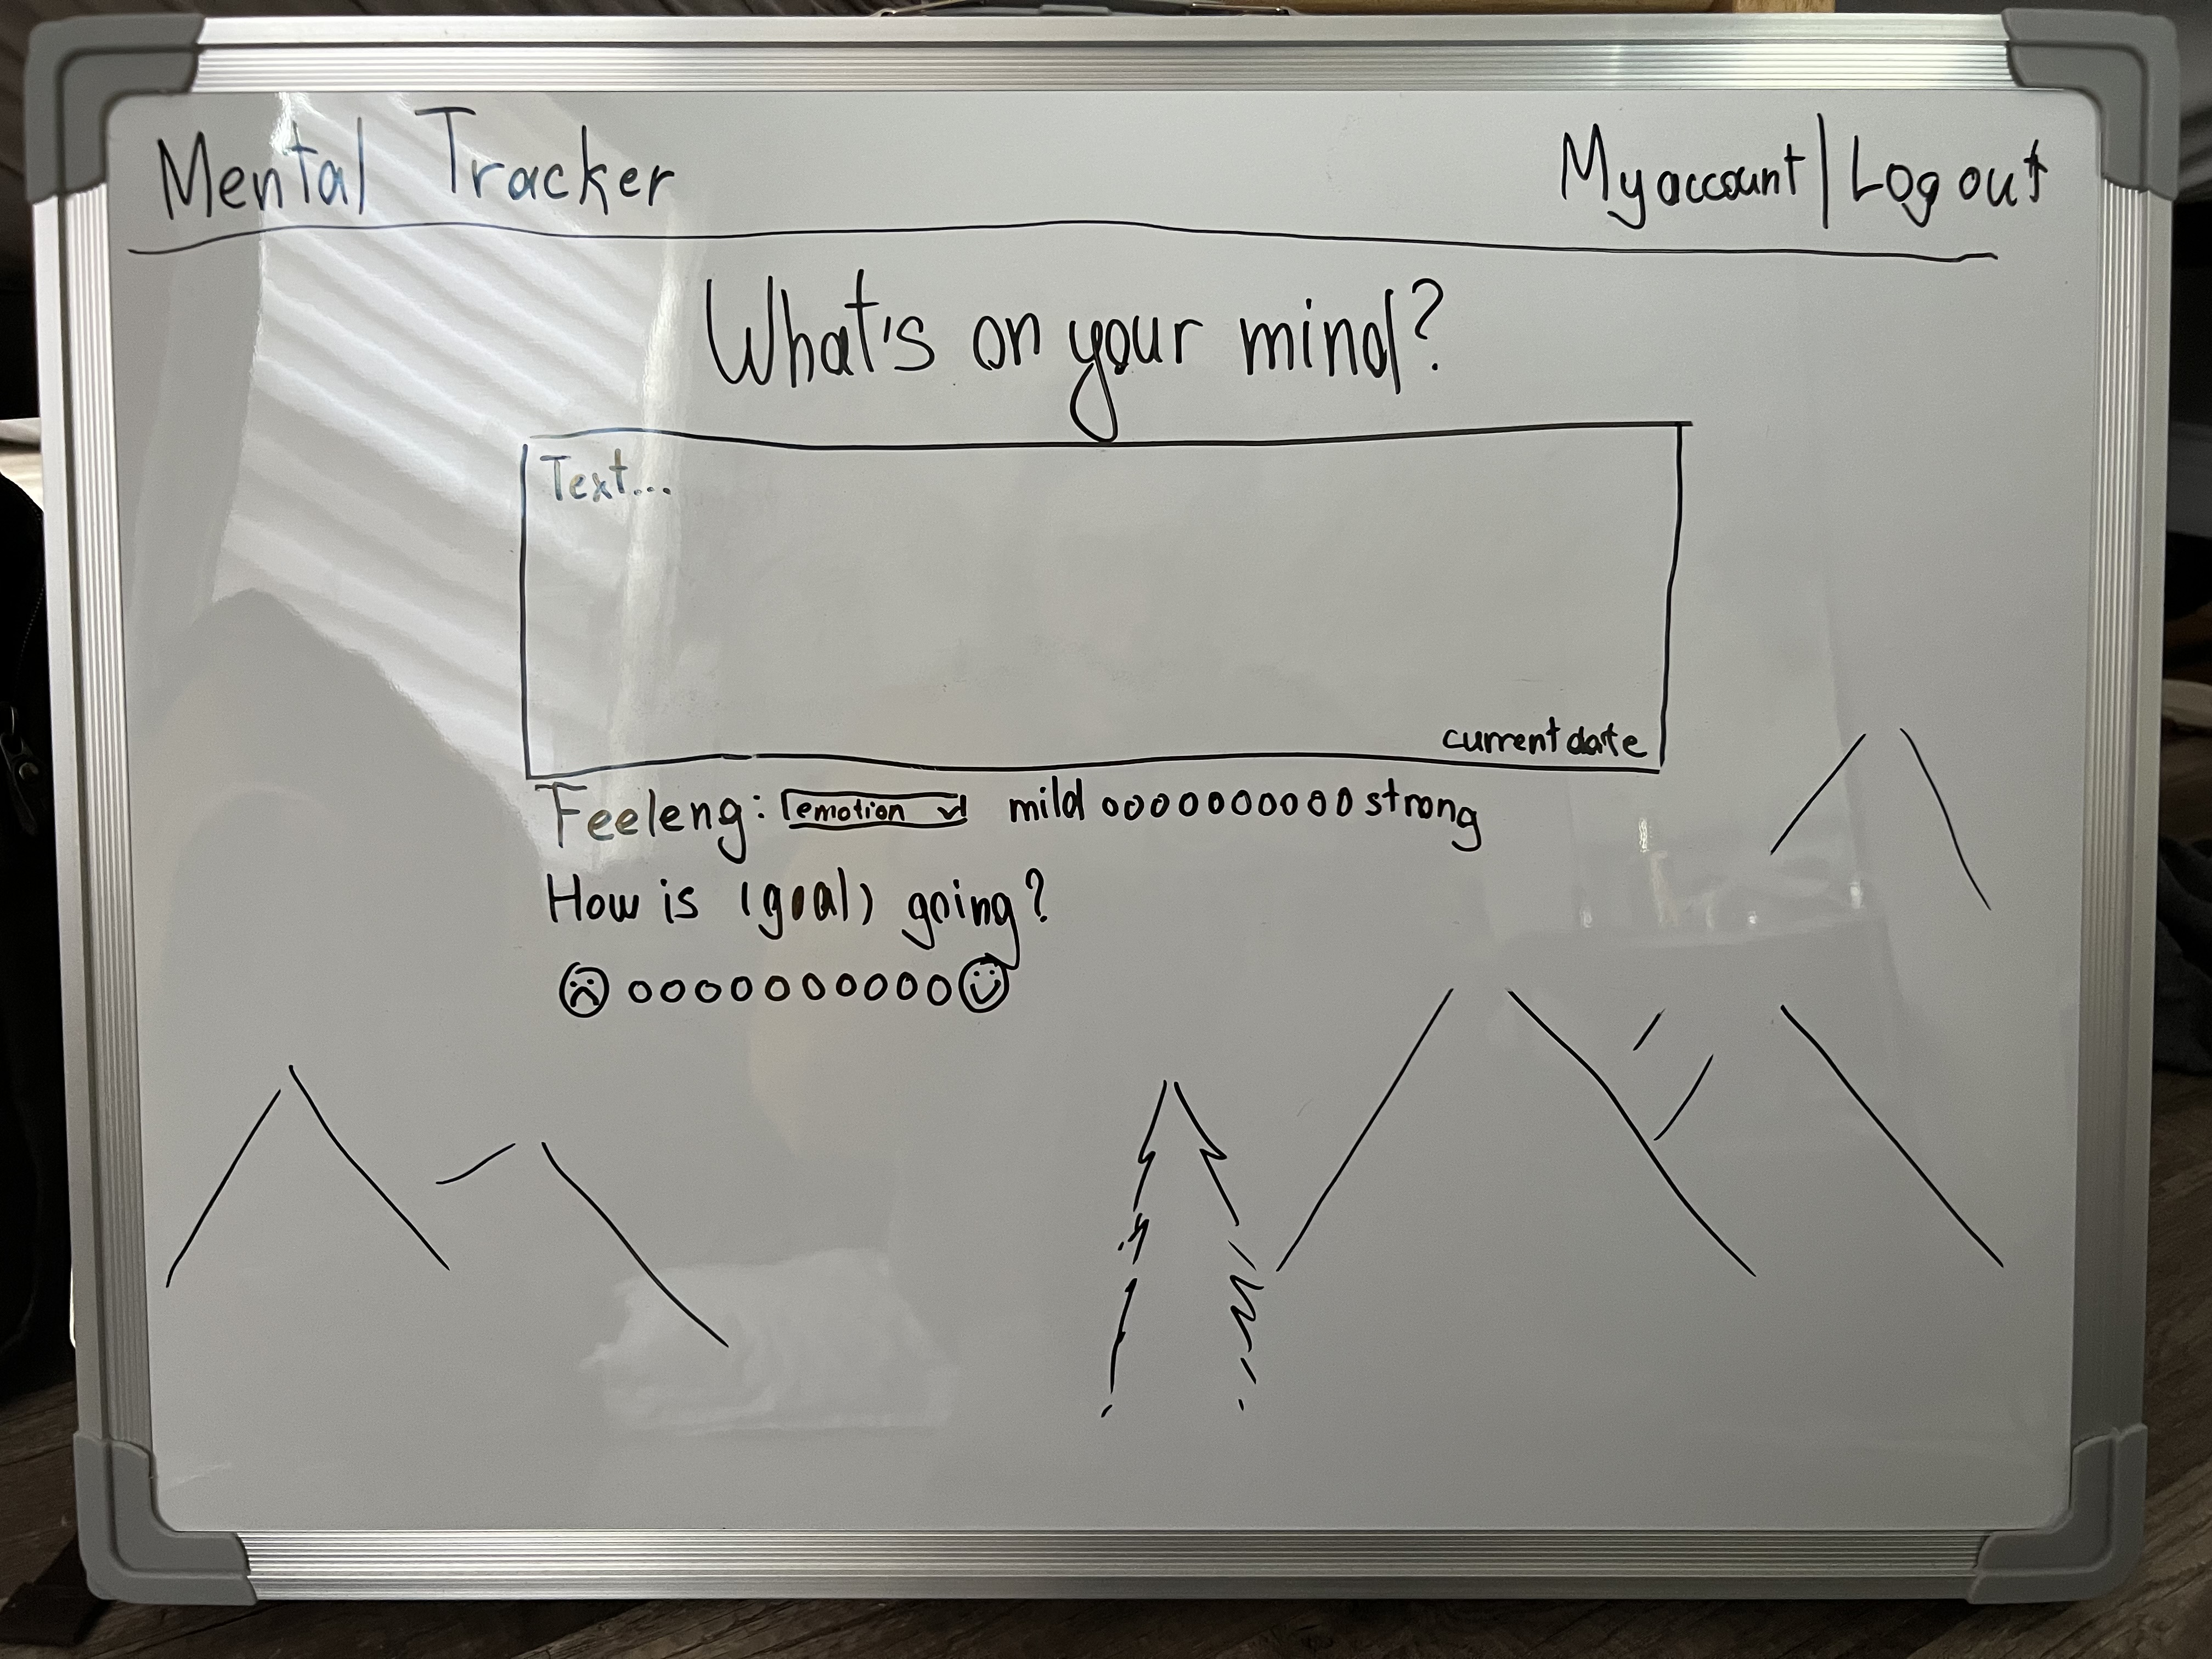 Mental Tracker My account | Log out
What's on your mind?
Text...
current date
Feeleng: emotion mild oooooooooo strong
How is (goal) going?
oooooooooo